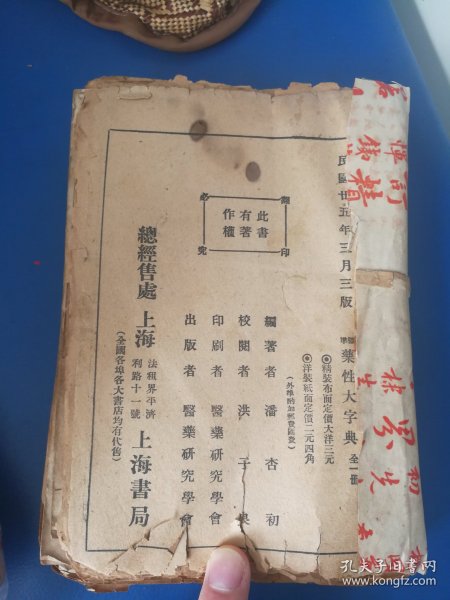 民國廿五年三月三版
標準藥性大字典 全一冊
◉精裝布面定價大洋三元
◉洋裝紙面定價二元四角
(外埠酌加郵費匯費)
此書
有著
作權
翻印
必究
編著者 潘杏初
校閱者 洪子良
印刷者 醫藥研究學會
出版者 醫藥研究學會
總經售處 上海 法租界平濟
利路十一號 上海書局
(全國各埠各大書店均有代售)
孔夫子旧书网